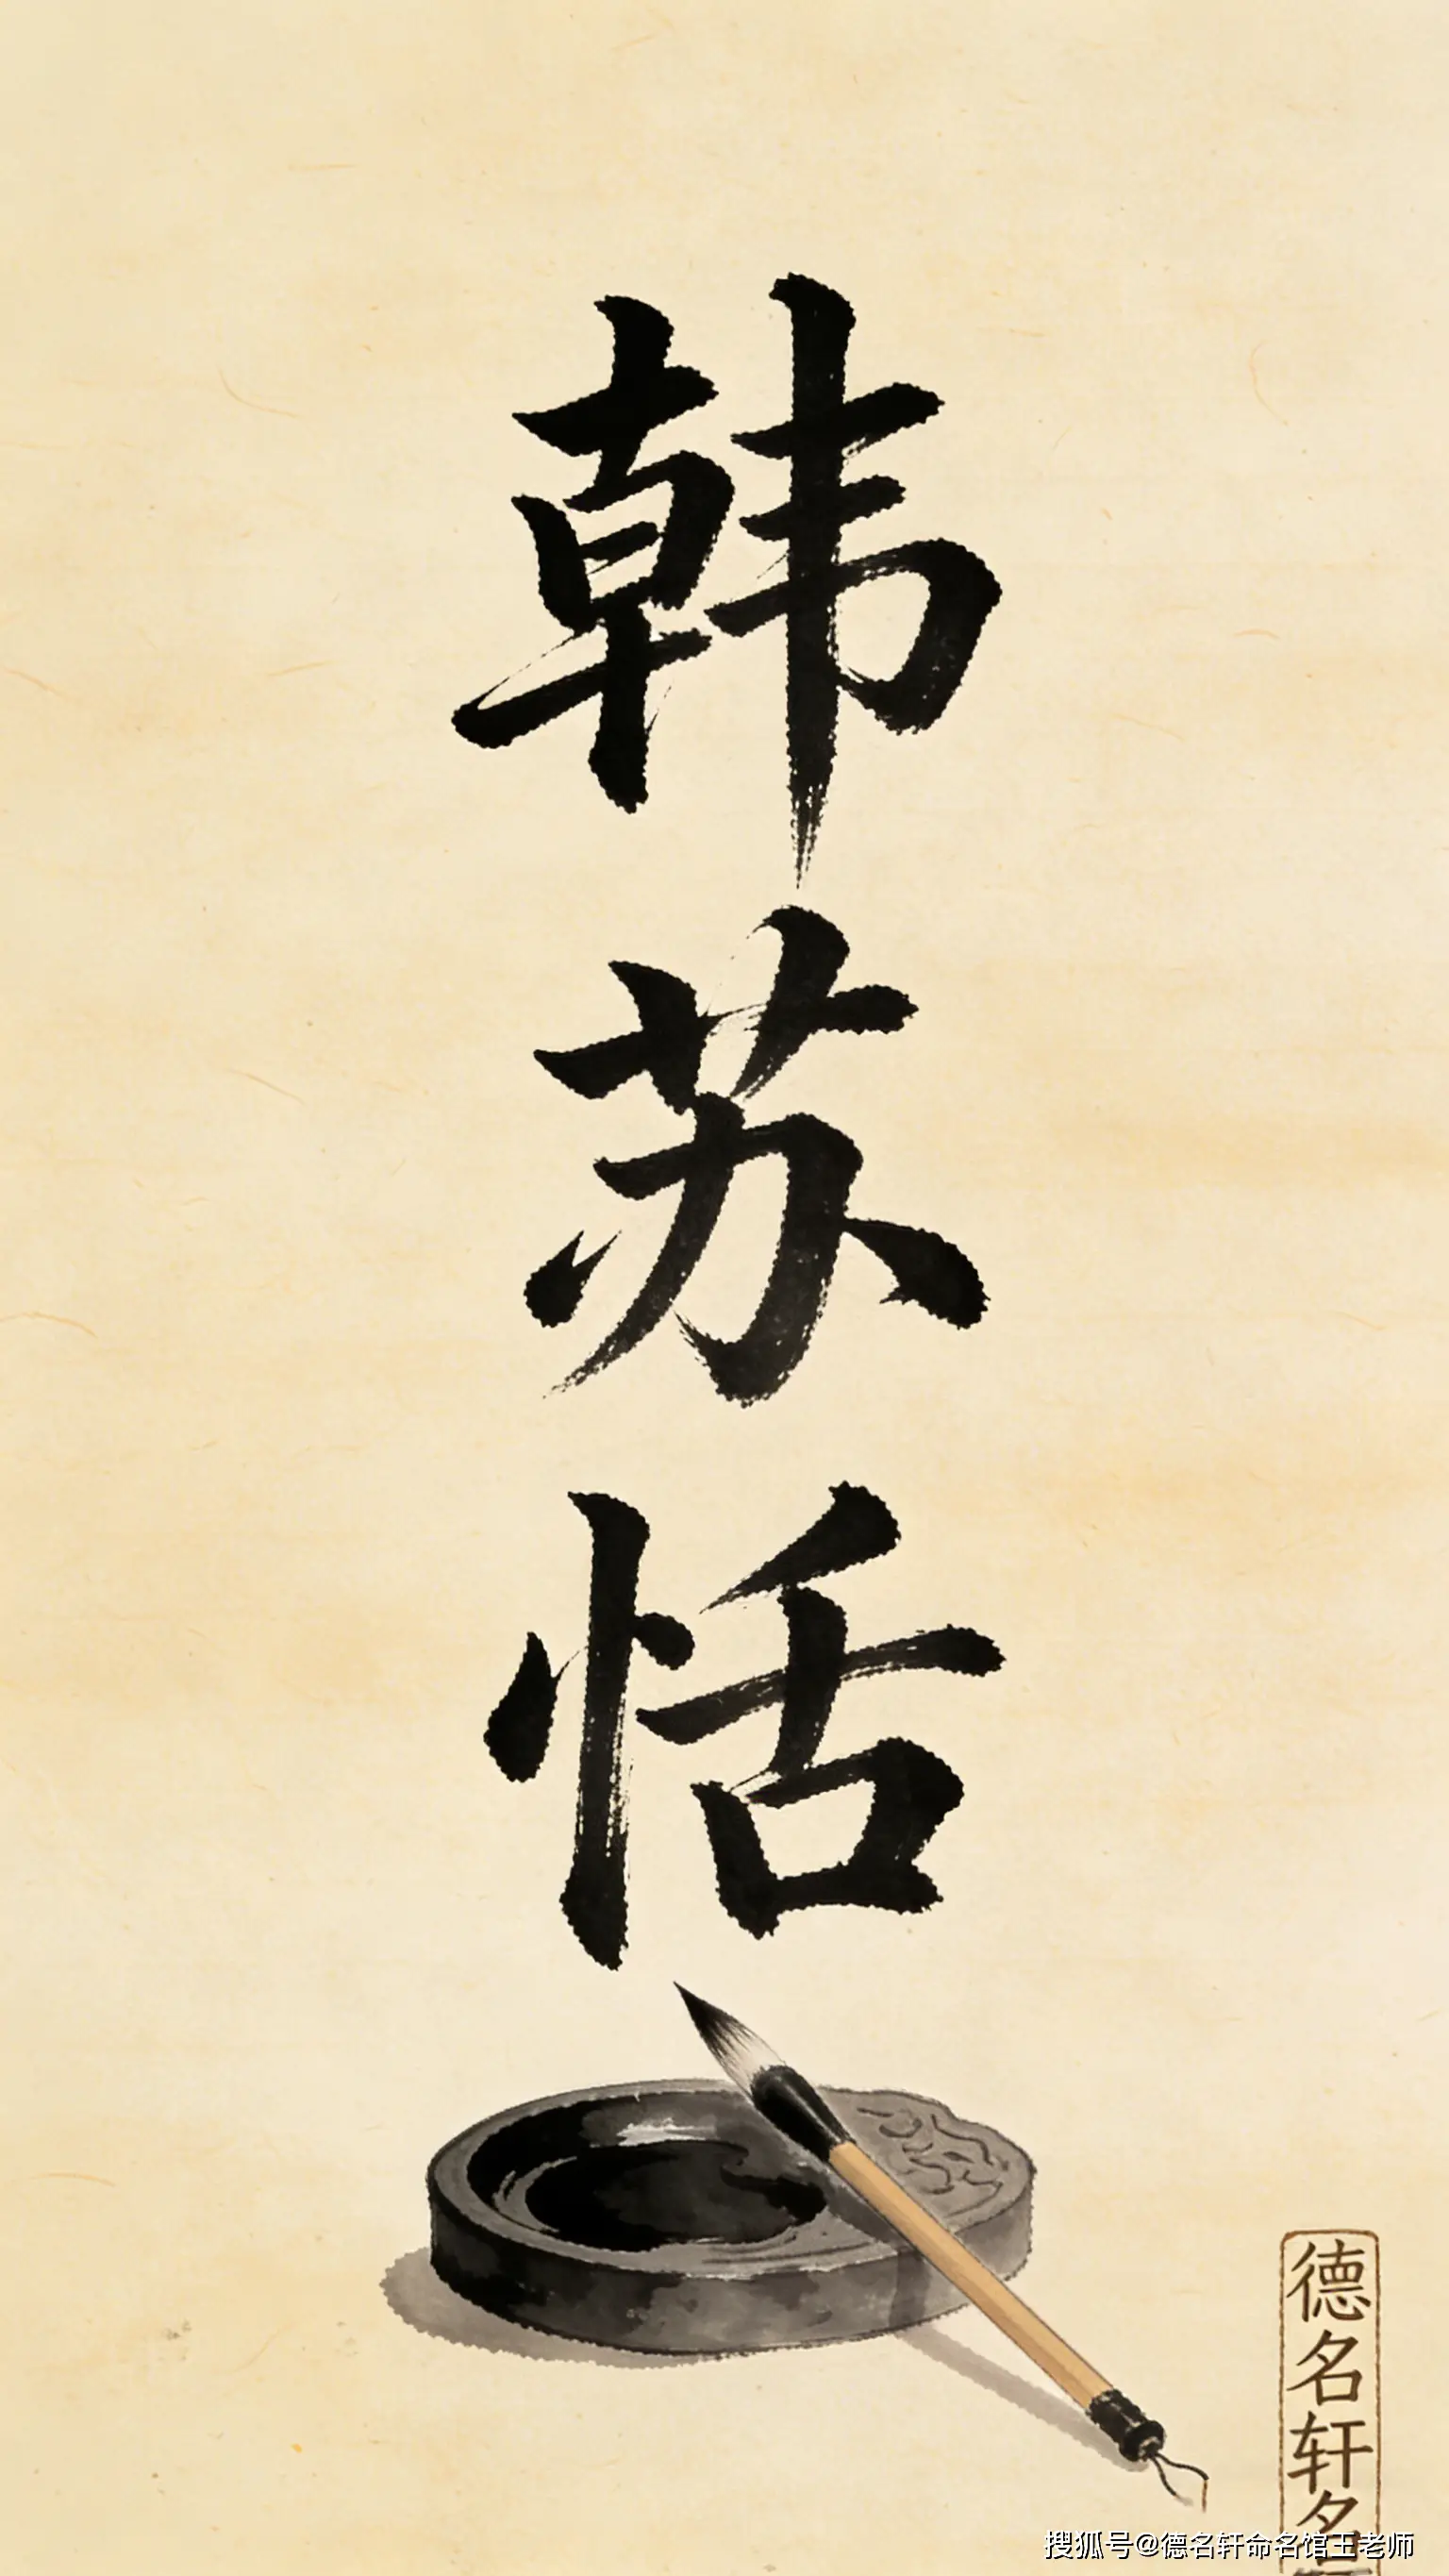 韩苏恬
德名轩名
搜狐号@德名轩命名馆王老师